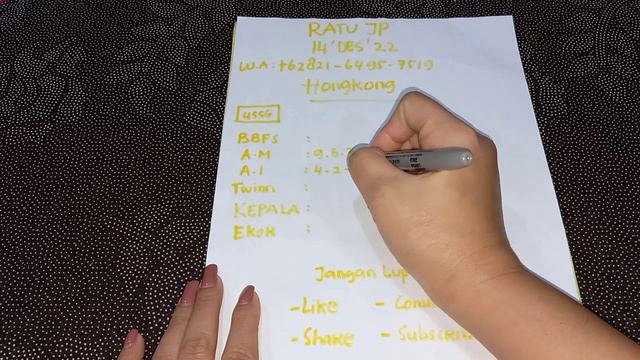 RATU JP
14 'DES' 22
W.A : +62821-6495-7519
Hongkong
4556
BBFS :
A.M : 9.5.
A.I : 4-2-
Twinn :
KEPALA :
EKOR :
Jangan Lup
- Like - Com
- Share - Subscri